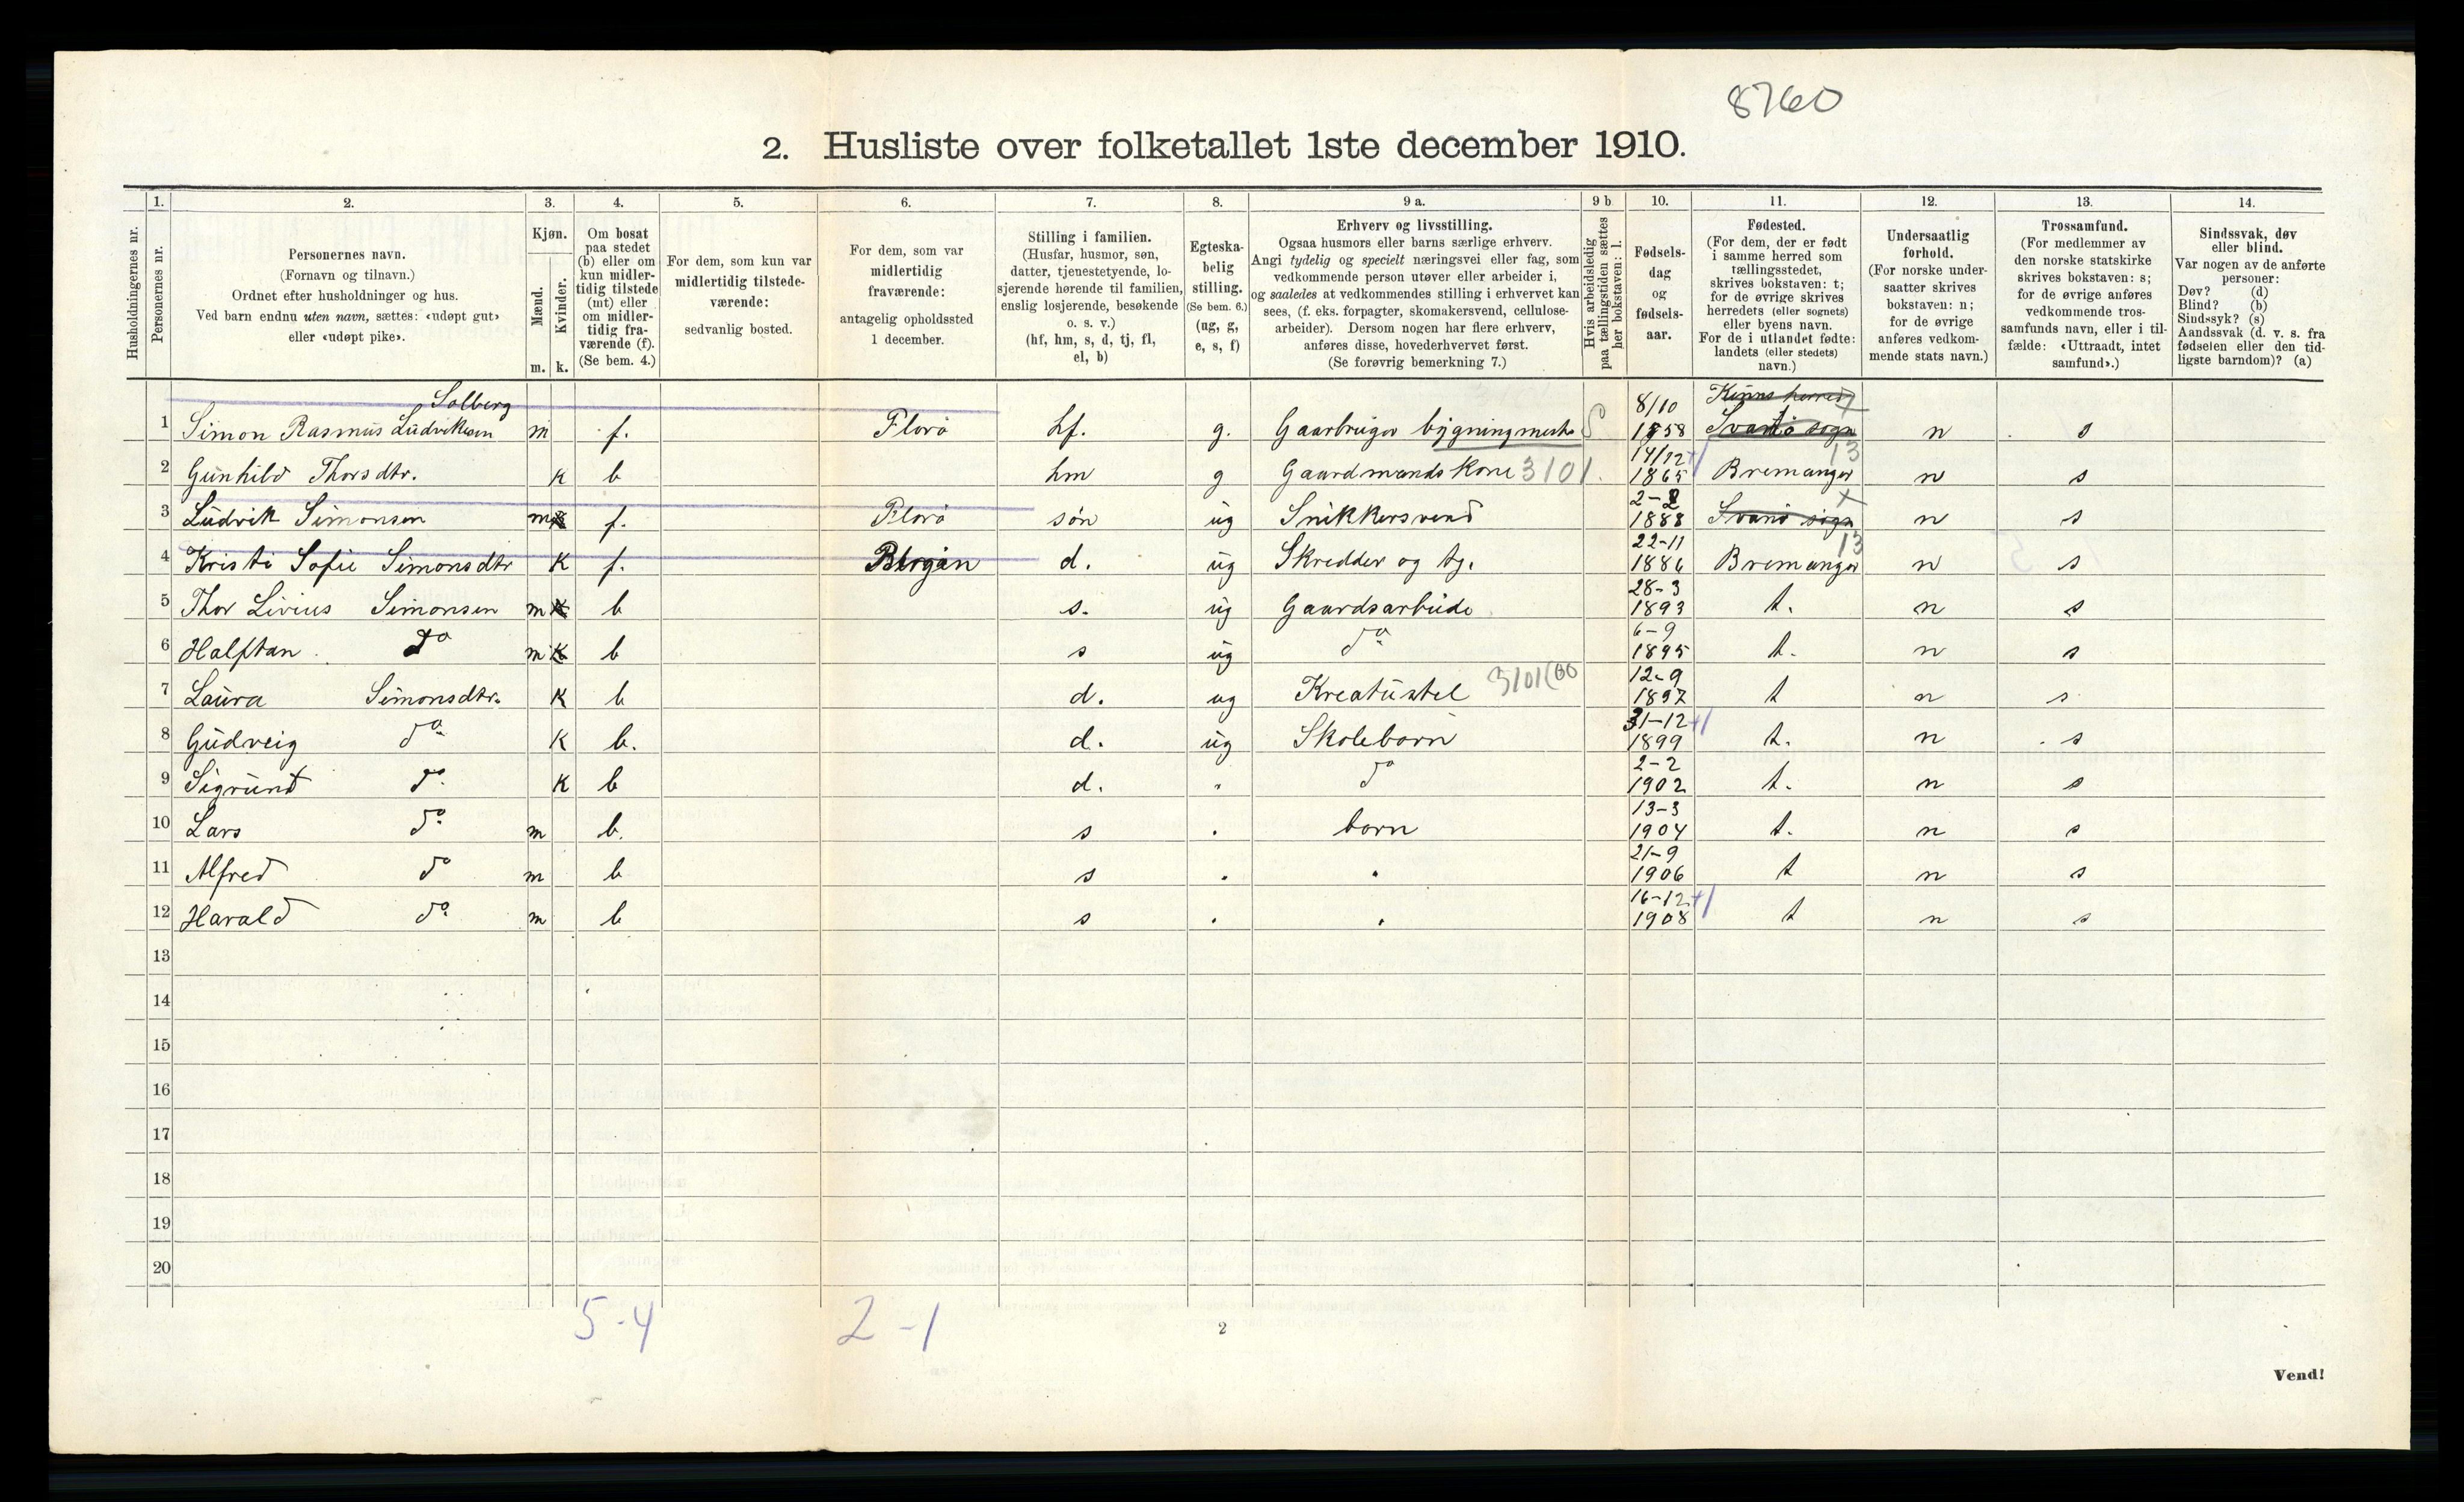 8760
2. Husliste over folketallet 1ste december 1910.
Husholdningernes nr.
1.
Personernes nr.
2.
Personernes navn.
(Fornavn og tilnavn.)
Ordnet efter husholdninger og hus.
Ved barn endnu uten navn, sættes: «udøpt gut»
eller «udøpt pike».
3.
Kjøn.
Mænd.
Kvinder.
m. k.
4.
Om bosat
paa stedet
(b) eller om
kun midler-
tidig tilstede
(mt) eller
om midler-
tidig fra-
værende (f).
(Se bem. 4.)
5.
For dem, som kun var
midlertidig tilstede-
værende:
sedvanlig bosted.
6.
For dem, som var
midlertidig
fraværende:
antagelig opholdssted
1 december.
7.
Stilling i familien.
(Husfar, husmor, søn,
datter, tjenestetyende, lo-
sjerende hørende til familien,
enslig losjerende, besøkende
o. s. v.)
(hf, hm, s, d, tj, fl,
el, b)
8.
Egteska-
belig
stilling.
(Se bem. 6.)
(ug, g,
e, s, f)
9 a.
Erhverv og livsstilling.
Ogsaa husmors eller barns særlige erhverv.
Angi tydelig og specielt næringsvei eller fag, som
vedkommende person utøver eller arbeider i,
og saaledes at vedkommendes stilling i erhvervet kan
sees, (f. eks. forpagter, skomakersvend, cellulose-
arbeider). Dersom nogen har flere erhverv,
anføres disse, hovederhvervet først.
(Se forøvrig bemerkning 7.)
9 b
Hvis arbeidsledig
paa tællingstiden sættes
her bokstaven: l.
10.
Fødsels-
dag
og
fødsels-
aar.
11.
Fødested.
(For dem, der er født
i samme herred som
tællingsstedet,
skrives bokstaven: t;
for de øvrige skrives
herredets (eller sognets)
eller byens navn.
For de i utlandet fødte:
landets (eller stedets)
navn.)
12.
Undersaatlig
forhold.
(For norske under-
saatter skrives
bokstaven: n;
for de øvrige
anføres vedkom-
mende stats navn.)
13.
Trossamfund.
(For medlemmer av
den norske statskirke
skrives bokstaven: s;
for de øvrige anføres
vedkommende tros-
samfunds navn, eller i til-
fælde: «Uttraadt, intet
samfund».)
14.
Sindssvak, døv
eller blind.
Var nogen av de anførte
personer:
Døv? (d)
Blind? (b)
Sindssyk? (s)
Aandssvak (d. v. s. fra
fødselen eller den tid-
ligste barndom)? (a)
Solberg 8/10 Kinns herred
1 Simon Rasmus Ludviksen m f. Florø hf. g. Gaarbruger bygningmest. 1858 Svanø sogn n s
14/12 13
2 Gunhild Thorsdtr. k b hm g Gaardmandskone 3101. 1865 Bremanger n s
2-2
3 Ludvik Simonsen m f. Florø søn ug Snikkersvend 1888 Svanø sogn n s
22-11 13
4 Kristi Sofie Simonsdtr K f. d. ug Skredder og tg. 1886 Bremanger n s
28-3
5 Thor Livius Simonsen m b s. ug Gaardsarbeide 1893 t. n s
6-9
6 Halftan do m b s ug do 1895 t. n s
12-9
7 Laura Simonsdtr. K b d. ug Kreatustel 3101(00 1897 t n s
31-12
8 Gudveig do K b. d. ug Skolebarn 1899 t. n s
2-2
9 Sigrund do K b d. " do 1902 t. n s
13-3
10 Lars do m b. s " barn 1904 t. n s
21-9
11 Alfred do m b s " " 1906 t n s
16-12
12 Harald do m b s " " 1908 t n s
13
14
15
16
17
18
19
20
5-4 2-1
2
Vend!